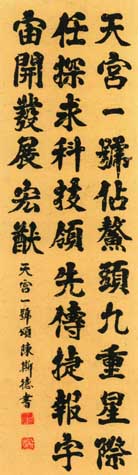 天宮一號佔鰲頭九重星際
任探求科技領先傳捷報宇
宙開發展宏猷
天宮一號頌陳斯德書